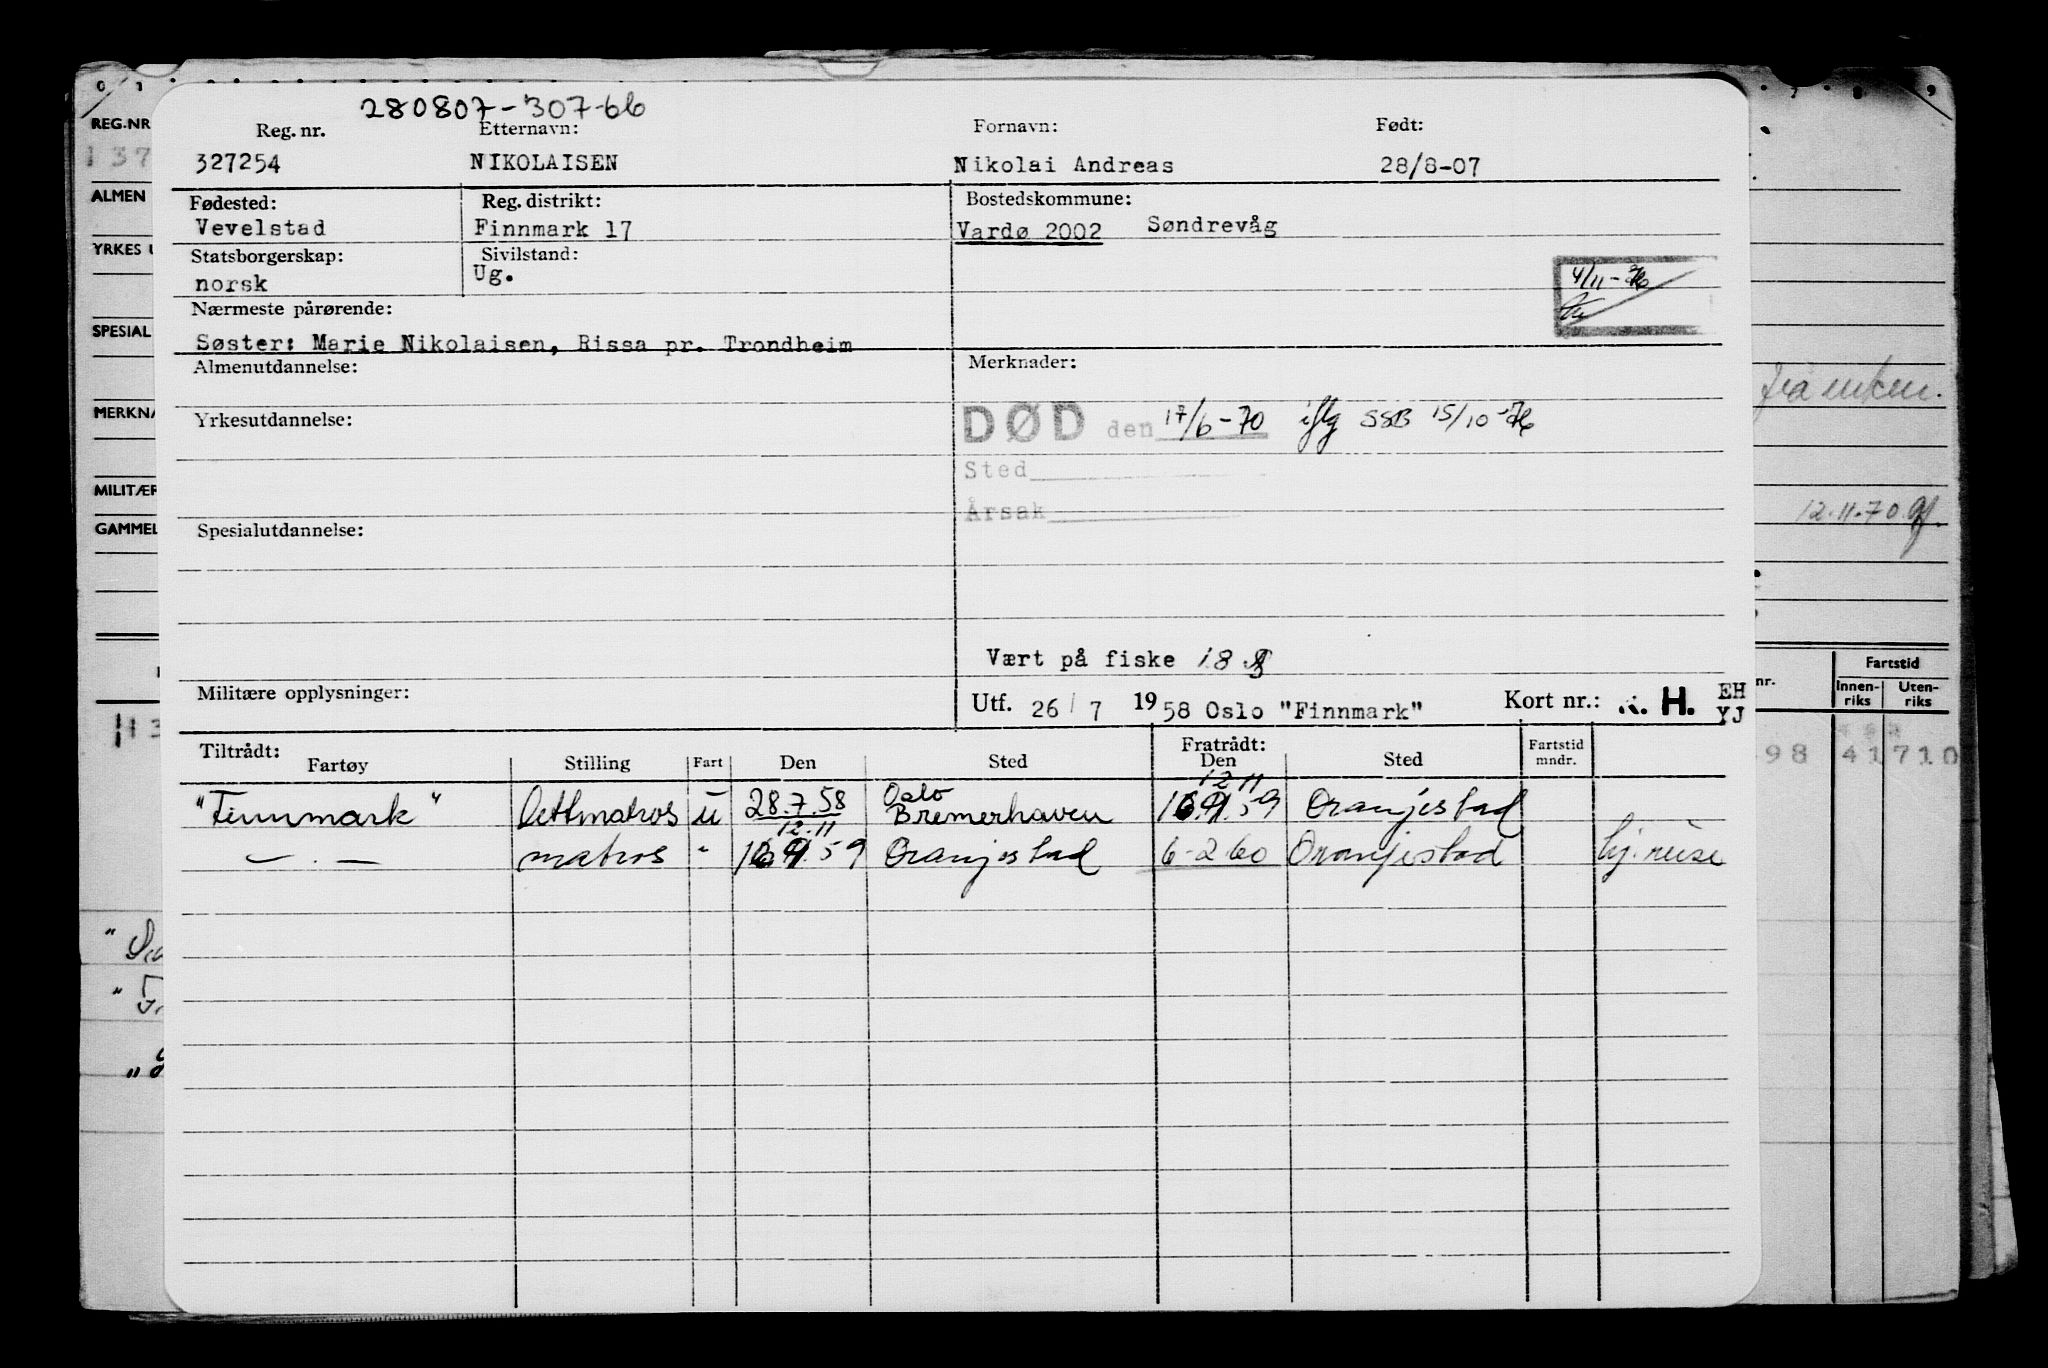 280807-307-66
Reg. nr. Etternavn: Fornavn: Født:
327254 NIKOLAISEN Nikolai Andreas 28/8-07
Fødested: Reg. distrikt: Bostedskommune:
Vevelstad Finnmark 17 Vardø 2002 Søndrevåg
Statsborgerskap: Sivilstand:
norsk Ug.
4/11-76
Nærmeste pårørende:
Søster: Marie Nikolaisen, Rissa pr. Trondheim
Almenutdannelse: Merknader:
Yrkesutdannelse: DØD den 17/6-70 iflg SSB 15/10-76
Sted
Årsak
Spesialutdannelse:
Vært på fiske 18
Militære opplysninger: Utf. 26/7 1958 Oslo "Finnmark" Kort nr.: K. H. EH
YJ
Tiltrådt: Fratrådt:
Fartøy Stilling Fart Den Sted Den Sted Fartstid mndr.
12.11
"Finnmark" Lettmatros u 28.7.58 Oslo Bremerhaven 59 Oranjestad
12.11
— . — matros " 59 Oranjestad 6-2 60 Oranjestad hj. reise
REG.NR
137
ALMEN
YRKES U
SPESIAL
MERKNA
MILITÆR
GAMMEL
fra enken.
12.11.70
nr. Fartstid
Innen-riks Uten-riks
98 41 710